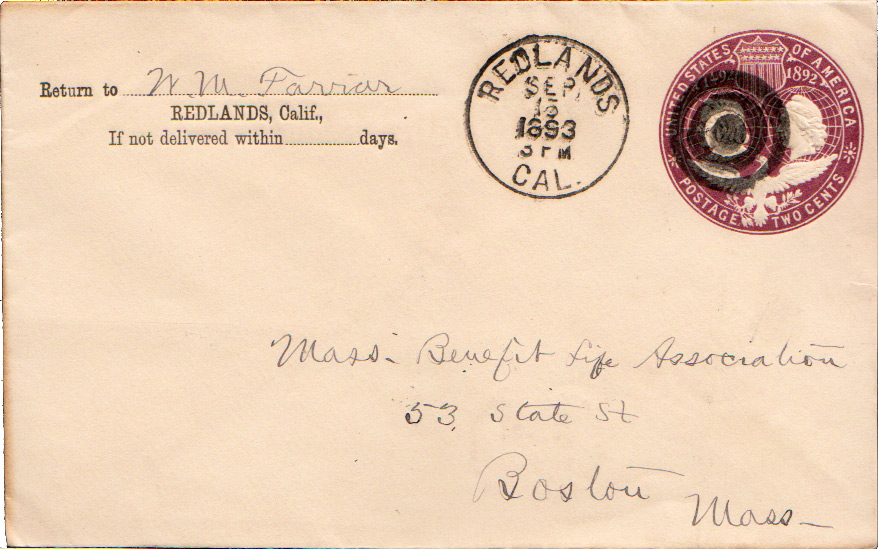 Return to W. M. Farriar
REDLANDS, Calif.,
If not delivered within days.
REDLANDS
SEP
15
1893
3 PM
CAL.
UNITED STATES OF AMERICA
1892
POSTAGE TWO CENTS
Mass- Benefit Life Association
53 State St
Boston
Mass-